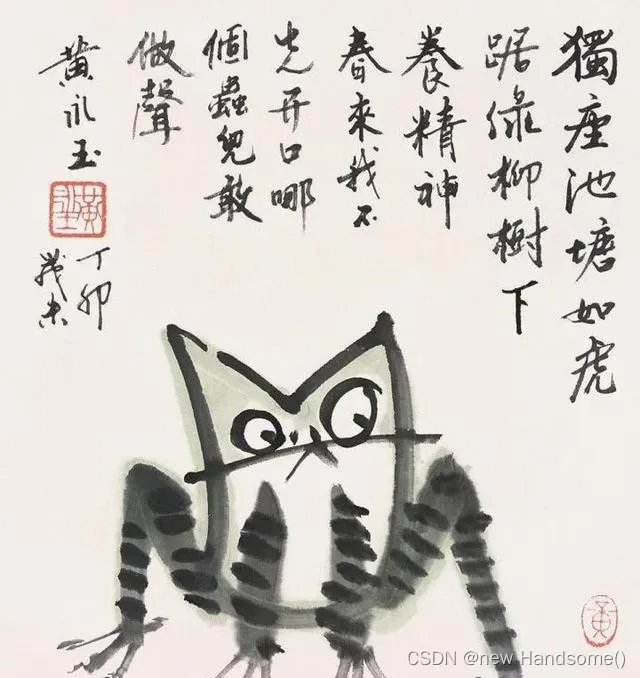 獨座池塘如虎
踞綠柳樹下
養精神
春來我不
先开口哪
個蟲兒敢
做聲
黄永玉
丁卯
歲末
黄
CSDN @new Handsome()